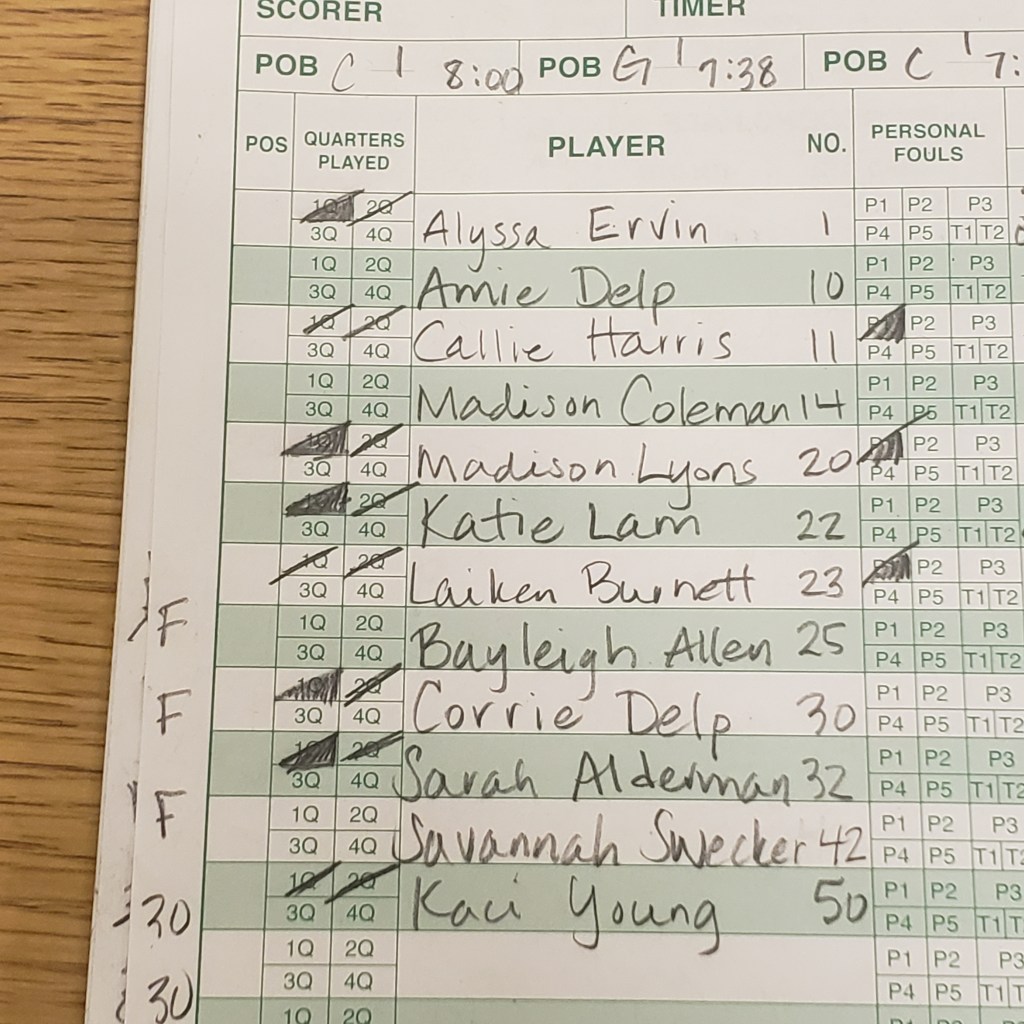 SCORER TIMER
POB C 1 8:00 POB G 1 7:38 POB C 1 7:
POS QUARTERS PLAYED PLAYER NO. PERSONAL FOULS
1Q 2Q Alyssa Ervin 1 P1 P2 P3
3Q 4Q P4 P5 T1 T2
1Q 2Q Amie Delp 10 P1 P2 P3
3Q 4Q P4 P5 T1 T2
1Q 2Q Callie Harris 11 P1 P2 P3
3Q 4Q P4 P5 T1 T2
1Q 2Q Madison Coleman 14 P1 P2 P3
3Q 4Q P4 P5 T1 T2
1Q 2Q Madison Lyons 20 P1 P2 P3
3Q 4Q P4 P5 T1 T2
1Q 2Q Katie Lam 22 P1 P2 P3
3Q 4Q P4 P5 T1 T2
1Q 2Q Laiken Burnett 23 P1 P2 P3
3Q 4Q P4 P5 T1 T2
F 1Q 2Q Bayleigh Allen 25 P1 P2 P3
3Q 4Q P4 P5 T1 T2
F 1Q 2Q Corrie Delp 30 P1 P2 P3
3Q 4Q P4 P5 T1 T2
1Q 2Q Sarah Alderman 32 P1 P2 P3
3Q 4Q P4 P5 T1 T2
F 1Q 2Q Savannah Swecker 42 P1 P2 P3
3Q 4Q P4 P5 T1 T2
30 1Q 2Q Kaci Young 50 P1 P2 P3
3Q 4Q P4 P5 T1 T
1Q 2Q P1 P2 P3
30 3Q 4Q P4 P5 T1 T
1Q 2Q